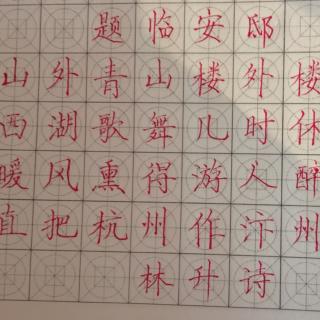 题临安邸
山外青山楼外楼
西湖歌舞几时休
暖风熏得游人醉
直把杭州作汴州
林升诗